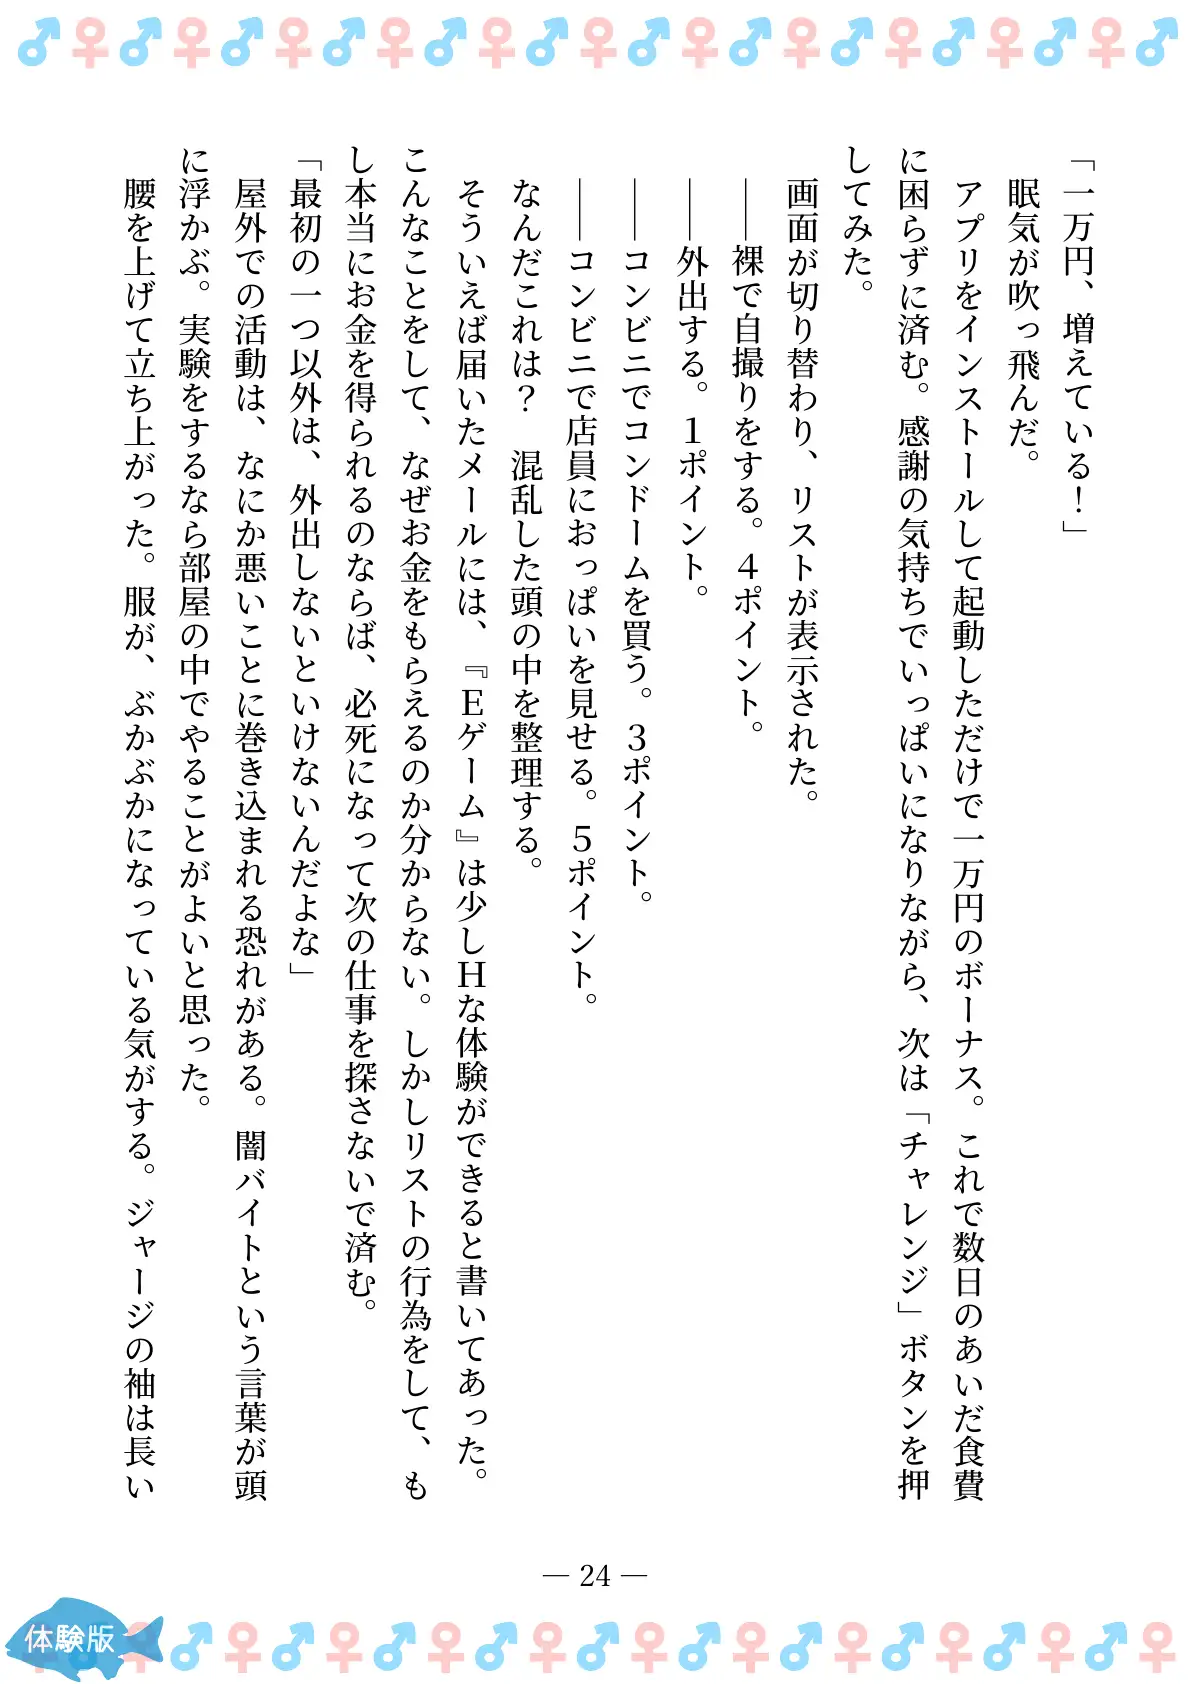 「一万円、増えている！」
　眠気が吹っ飛んだ。
　アプリをインストールして起動しただけで一万円のボーナス。これで数日のあいだ食費
に困らずに済む。感謝の気持ちでいっぱいになりながら、次は「チャレンジ」ボタンを押
してみた。
　画面が切り替わり、リストが表示された。
　――裸で自撮りをする。４ポイント。
　――外出する。１ポイント。
　――コンビニでコンドームを買う。３ポイント。
　――コンビニで店員におっぱいを見せる。５ポイント。
　なんだこれは？　混乱した頭の中を整理する。
　そういえば届いたメールには、『Ｅゲーム』は少しＨな体験ができると書いてあった。
こんなことをして、なぜお金をもらえるのか分からない。しかしリストの行為をして、も
し本当にお金を得られるのならば、必死になって次の仕事を探さないで済む。
「最初の一つ以外は、外出しないといけないんだよな」
　屋外での活動は、なにか悪いことに巻き込まれる恐れがある。闇バイトという言葉が頭
に浮かぶ。実験をするなら部屋の中でやることがよいと思った。
　腰を上げて立ち上がった。服が、ぶかぶかになっている気がする。ジャージの袖は長い
― 24 ―
体験版